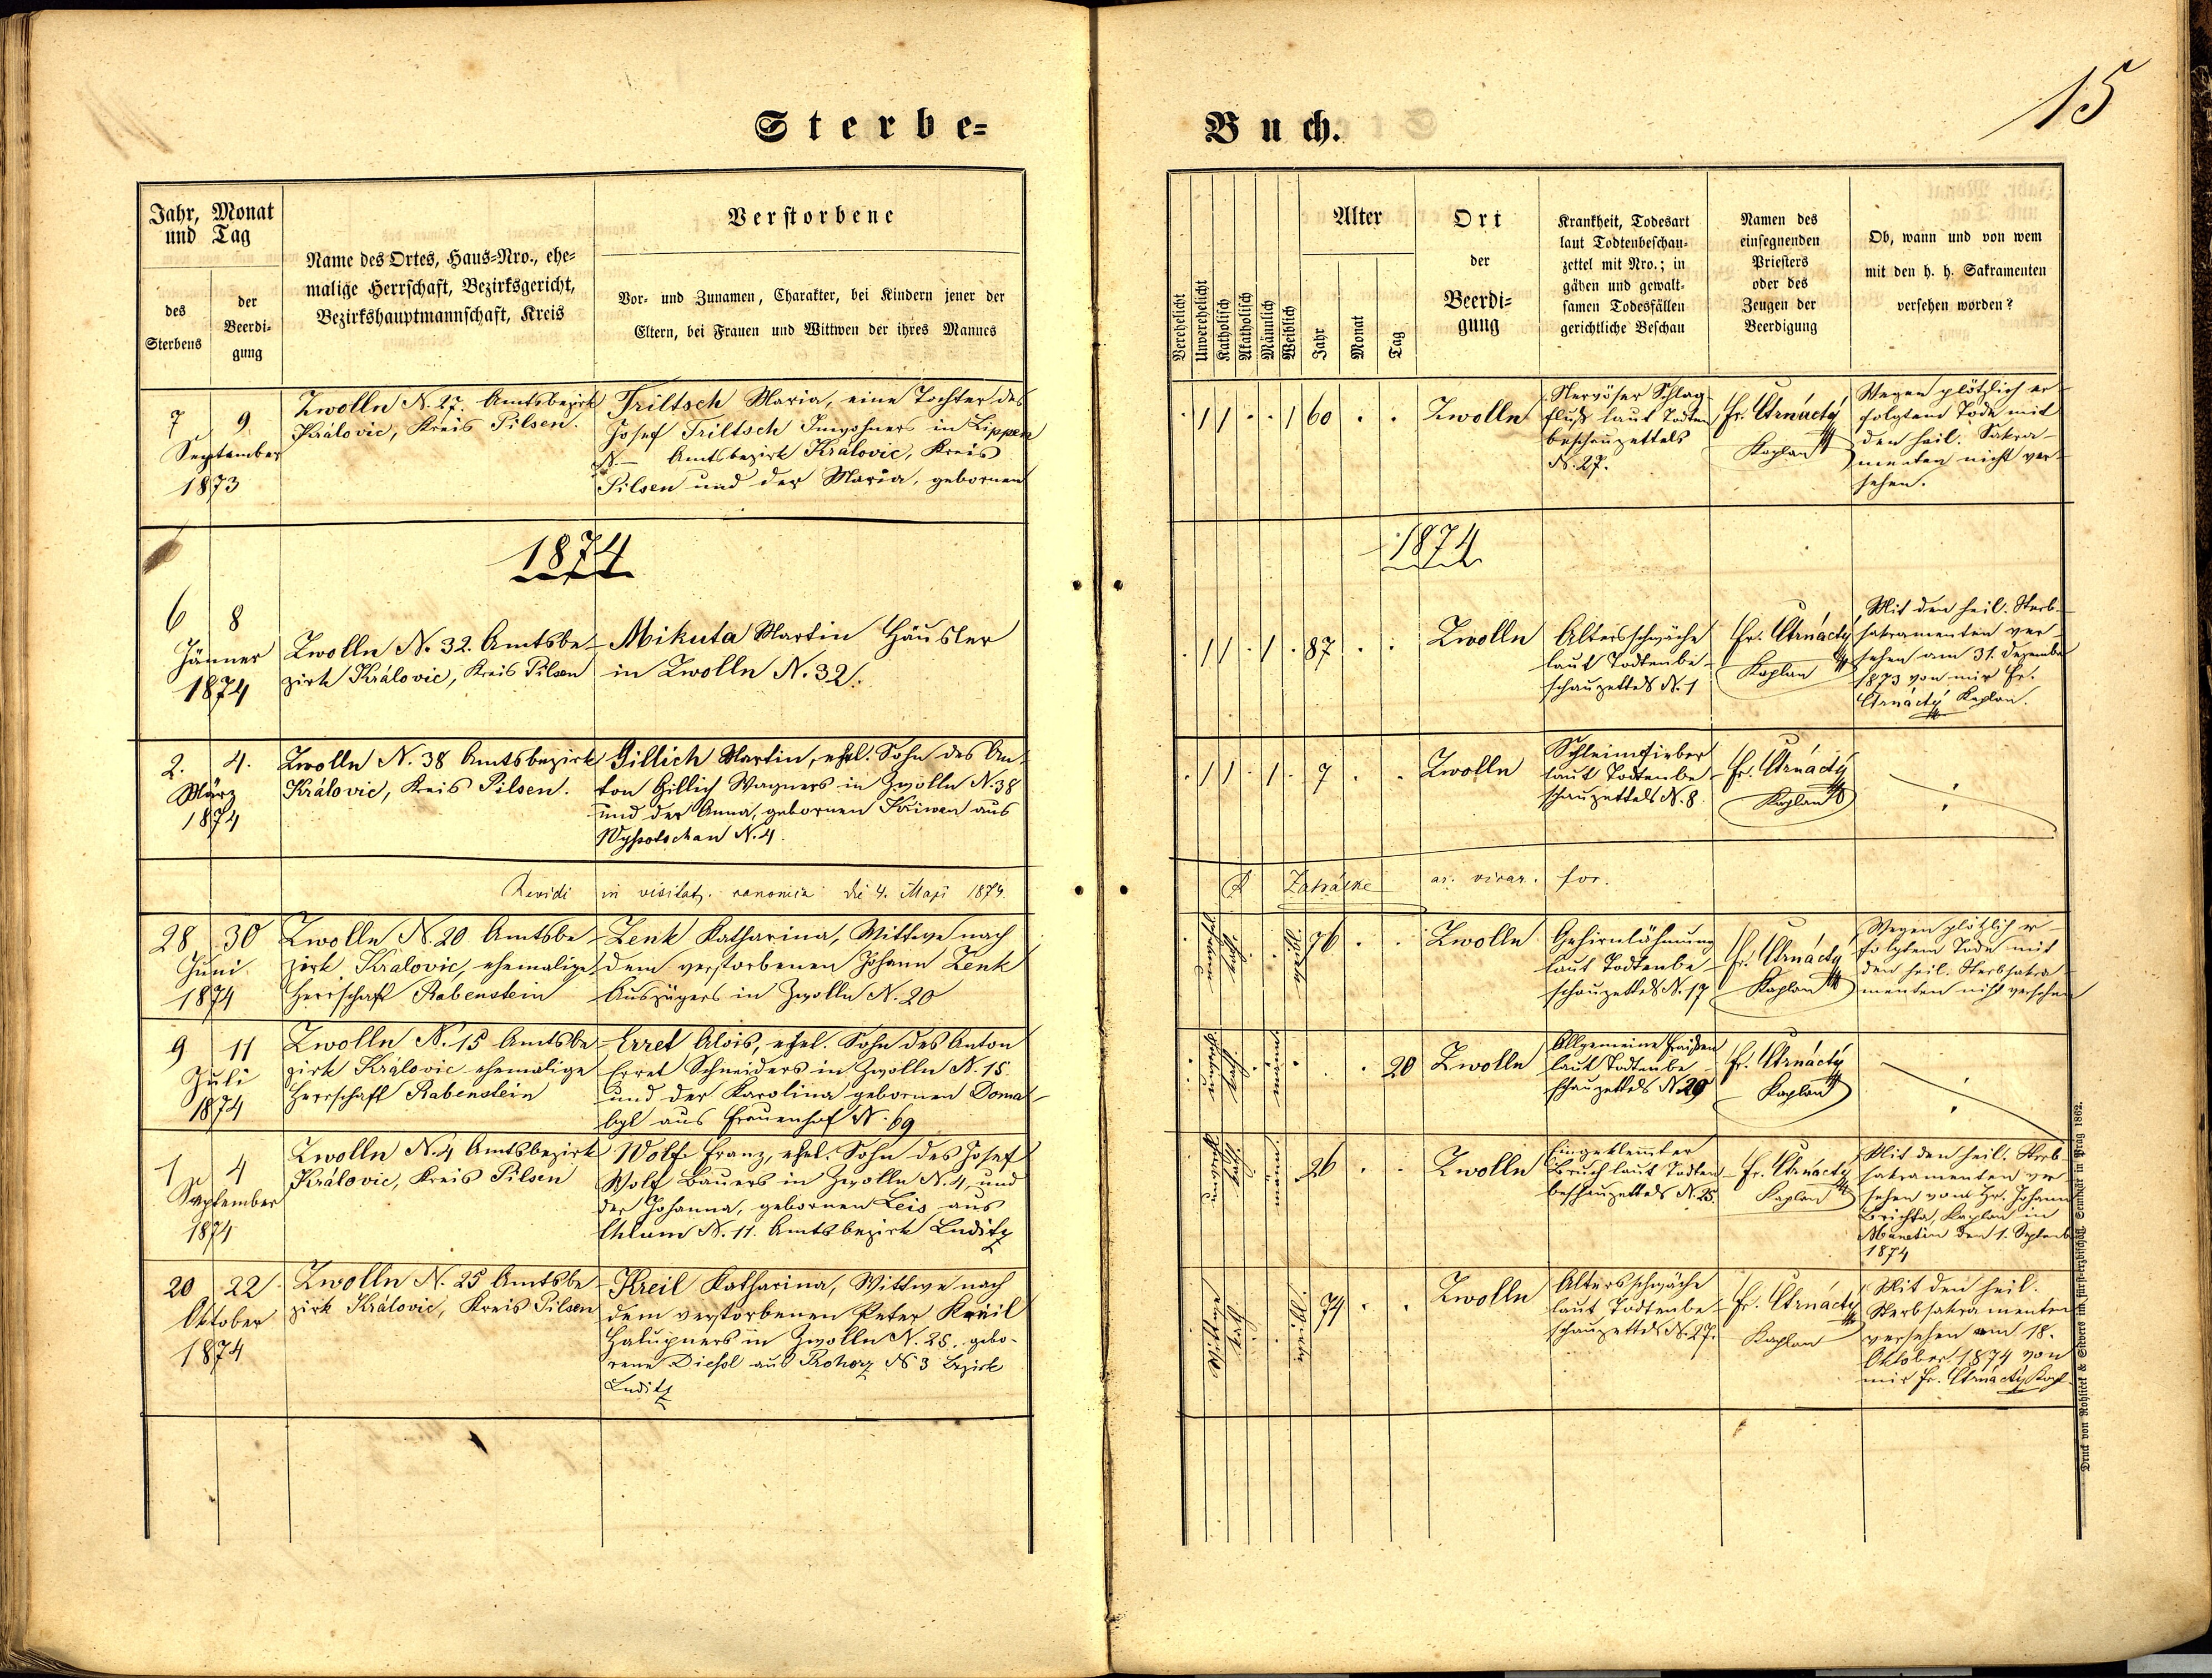 15
Sterbe=
Buch.
Jahr, Monat
und Tag
des
Sterbens
der
Beerdi-
gung
Name des Ortes, Haus=Nro., ehe-
malige Herrschaft, Bezirksgericht,
Bezirkshauptmannschaft, Kreis
Verstorbene
Vor- und Zunamen, Charakter, bei Kindern jener der
Eltern, bei Frauen und Wittwen der ihres Mannes
Verehelicht
Unverehelicht
Katholisch
Akatholisch
Männlich
Weiblich
Alter
Jahr
Monat
Tag
Ort
der
Beerdi-
gung
Krankheit, Todesart
laut Todtenbeschau-
zettel mit Nro.; in
gähen und gewalt-
samen Todesfällen
gerichtliche Beschau
Namen des
einsegnenden
Priesters
oder des
Zeugen der
Beerdigung
Ob, wann und von wem
mit den h. h. Sakramenten
versehen worden?
7 9
September
1873
Zwolln N. 27. Amtsbezirk
Královic, Kreis Pilsen.
Triltsch Maria, eine Tochter des
Josef Triltsch Inwohners in Lippen
N— Amtsbezirk Královic, Kreis
Pilsen und der Maria, gebornen
1 1 1 60
Zwolln
Nervöser Schlag-
fluß laut Todten
beschauzettels
N. 27.
Fr. Ctrnáctý
Kaplan
Wegen plötzlich er-
folgtem Tode mit
den heil. Sakra-
menten nicht ver-
sehen.
1874
1874
6 8
Jänner
1874
Zwolln N. 32. Amtsbe-
zirk Královic, Kreis Pilsen
Mikuta Martin Häusler
in Zwolln N. 32.
1 1 1 87
Zwolln
Altersschwäche
laut Todtenbe-
schauzettels N. 1
Fr. Ctrnáctý
Kaplan
Mit den heil. Sterb-
sakramenten ver-
sehen am 31. Dezember
1873 von mir Fr.
Ctrnáctý Kaplan.
2. 4.
März
1874
Zwolln N. 38 Amtsbezirk
Královic, Kreis Pilsen.
Gillich Martin, ehel. Sohn des An-
ton Gillich Wagners in Zwolln N. 38
und der Anna, gebornen Kriwen aus
Wyhsotschan N. 4.
1 1 1 7
Zwolln
Schleimfieber
laut Todtenbe-
schauzettels N. 8.
Fr. Ctrnáctý
Kaplan
Revidi in visitat. canonica die 4. Maji 1874.
ar. vicar. for.
28 30
Juni
1874
Zwolln N. 20 Amtsbe-
zirk Kralovic, ehemalige
Herrschaft Rabenstein
Zenk Katharina, Wittwe nach
dem verstorbenen Johann Zenk
Auszügers in Zwolln N. 20
76
Zwolln
Gehirnlähmung
laut Todtenbe-
schauzettels N. 17
Fr. Ctrnáctý
Kaplan
Wegen plötzlich er-
folgtem Tode mit
den heil. Sterbsakra-
menten nicht versehen
9 11
Juli
1874
Zwolln N. 15 Amtsbe-
zirk Královic ehemalige
Herrschaft Rabenstein
Erret Alois, ehel. Sohn des Anton
Erret Schneiders in Zwolln N. 15
und der Karolina gebornen Doma-
aus Frauenhof N. 69
20
Zwolln
Allgemeine Fraißen
laut Todtenbe-
schauzettels N. 20
Fr. Ctrnáctý
Kaplan
1 4
September
1874
Zwolln N. 4 Amtsbezirk
Královic, Kreis Pilsen
Wolf Franz, ehel. Sohn des Josef
Wolf Bauers in Zwolln N. 4, und
der Johanna, gebornen Leis aus
Chlum N. 11. Amtsbezirk Luditz
26
Zwolln
Eingeklemmter
Bruch laut Todten-
beschauzettels N. 25.
Fr. Ctrnáctý
Kaplan
Mit den heil. Sterb-
sakramenten ver-
sehen vom Hr. Johann
Brichta, Kaplan in
Manetin den 1. Septemb
1874
20 22
Oktober
1874
Zwolln N. 25 Amtsbe-
zirk Královic, Kreis Pilsen
Kreil Katharina, Wittwe nach
dem verstorbenen Peter Kreil
Halupners in Zwolln N. 25, gebo-
rene Diesol aus Prohorz N 3 Bezirk
Luditz
74
Zwolln
Altersschwäche
laut Todtenbe-
schauzettels N. 27.
Fr. Ctrnáctý
Kaplan
Mit den heil.
Sterbsakramenten
versehen am 18.
Oktober 1874 von
mir Fr. Ctrnáctý Kapl.
Druck von Rohliček & Sievers im fürsterzbischöfl. Seminär in Prag 1862.